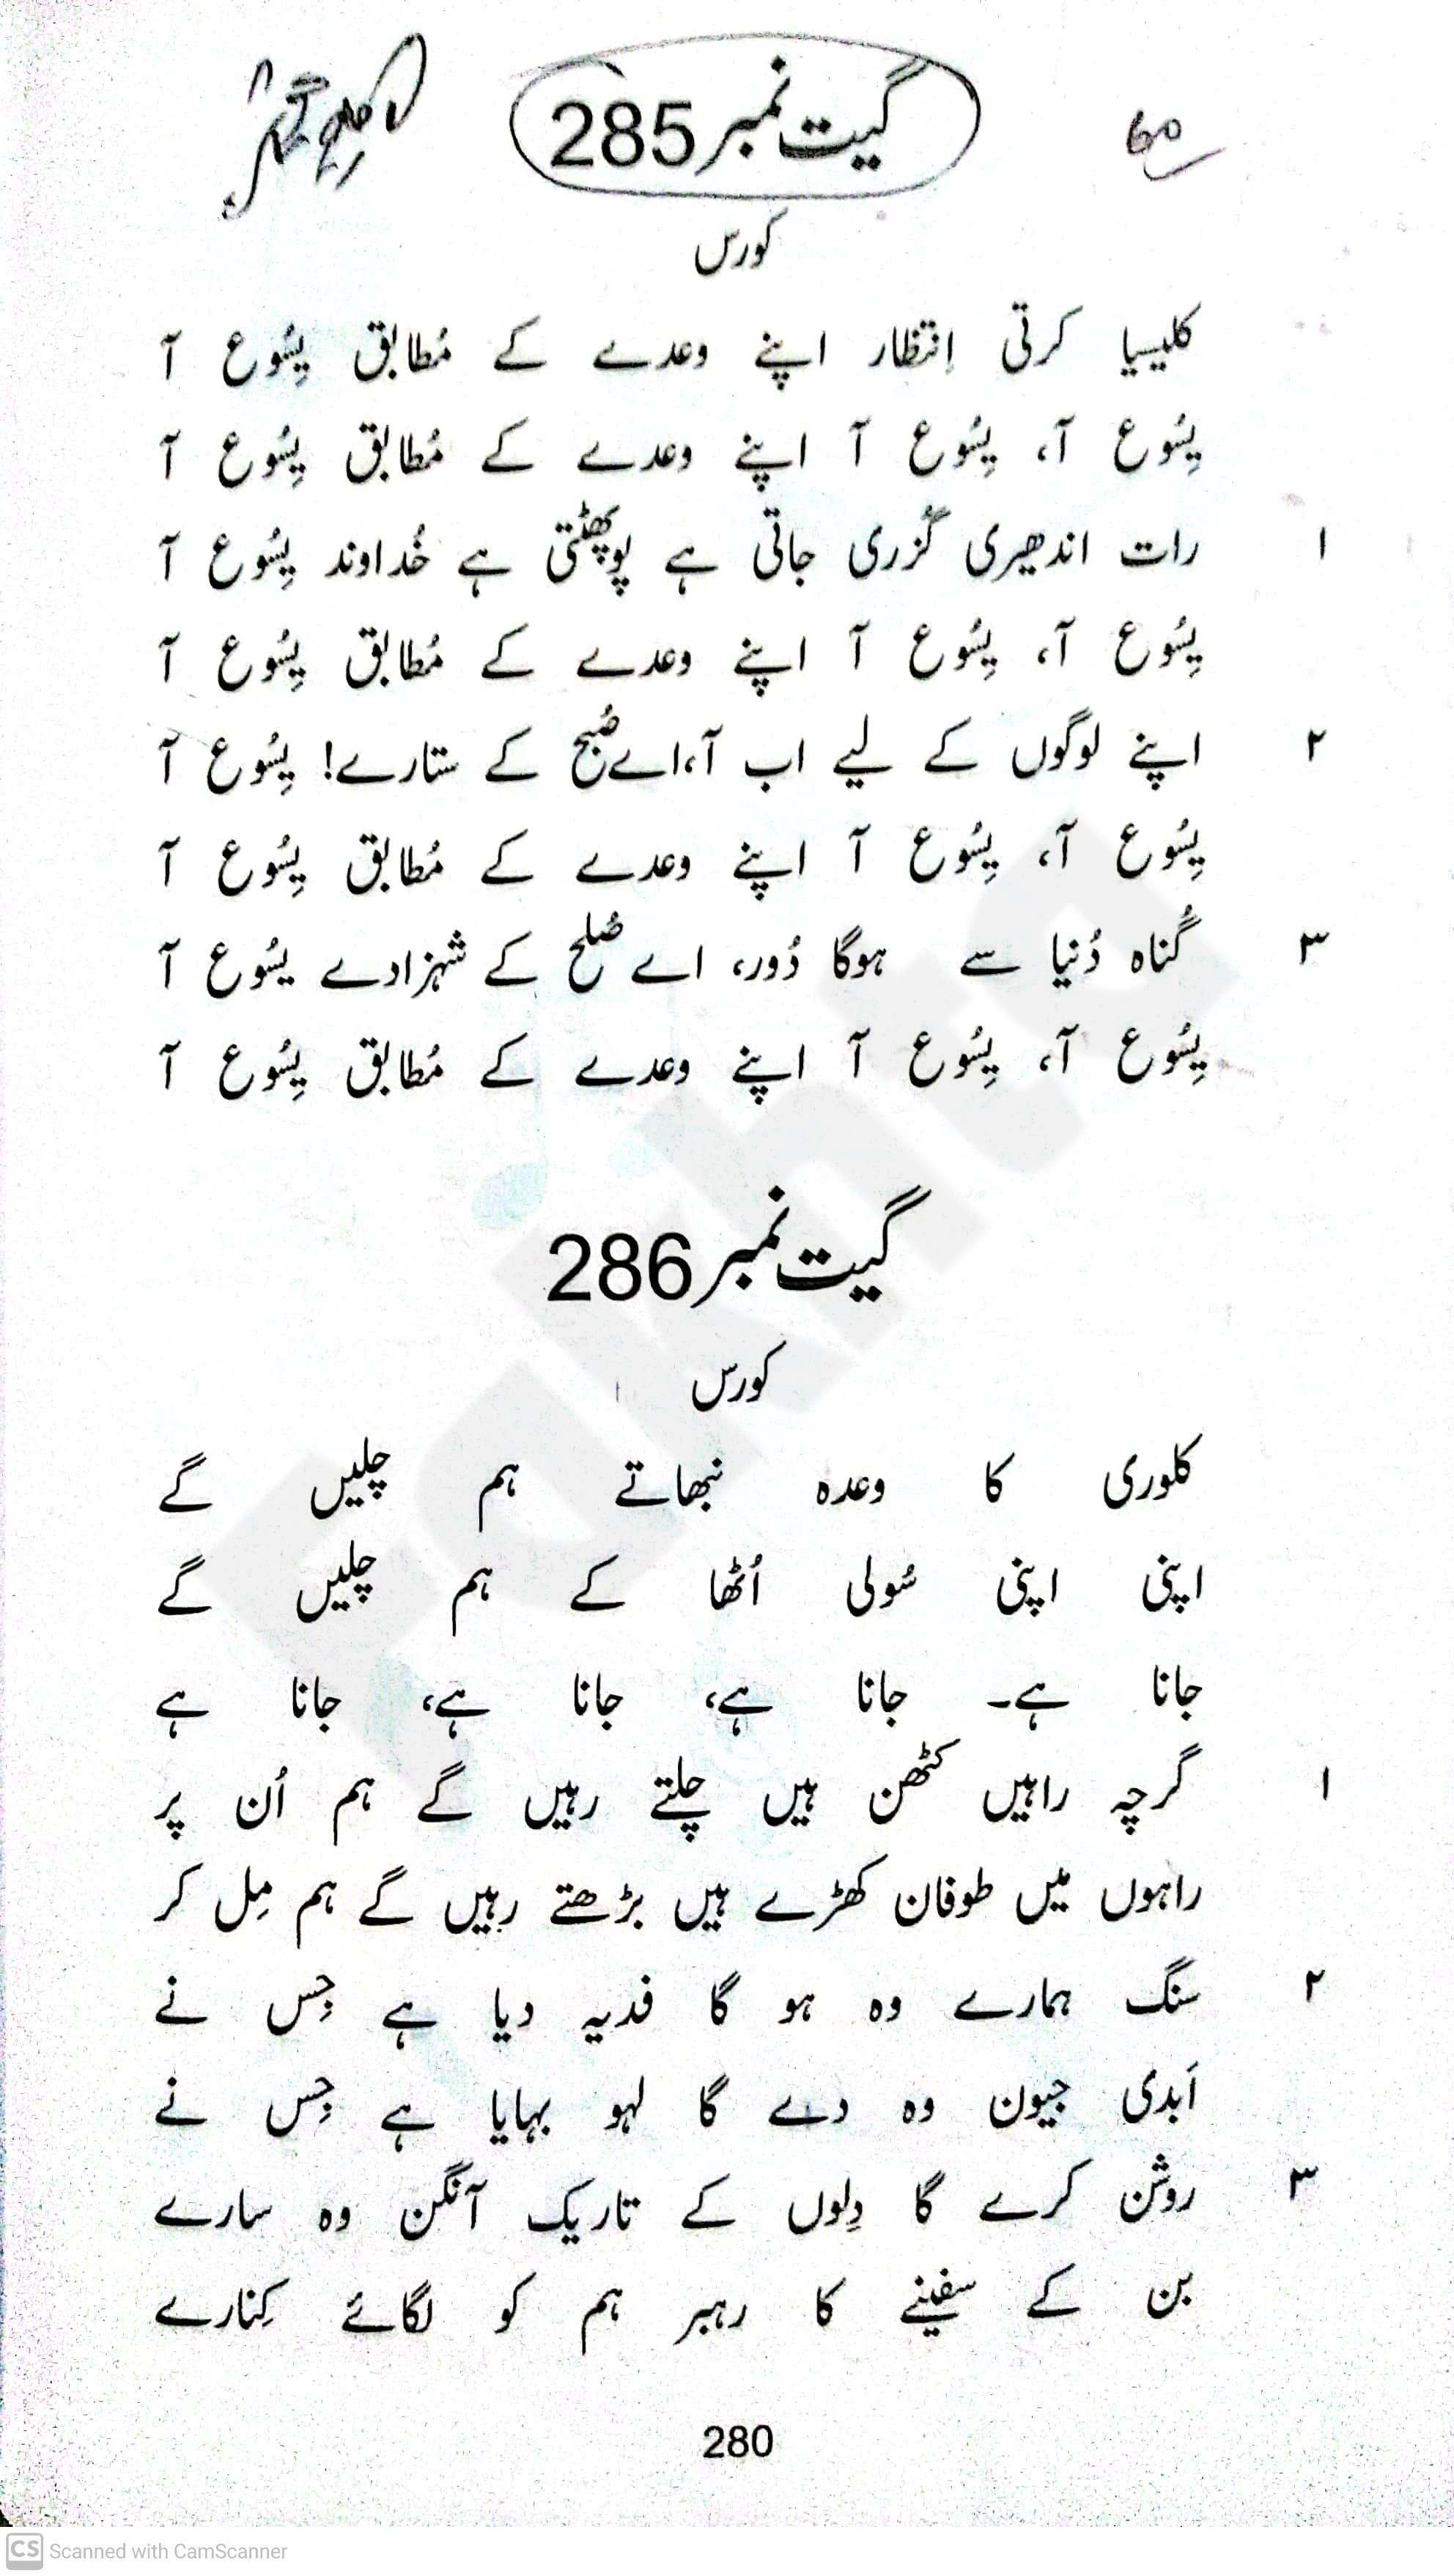 گیت نمبر 285
60
کورس
کلیسیا کرتی اِنتظار اپنے وعدے کے مُطابق یِسُوع آ
یِسُوع آ، یِسُوع آ اپنے وعدے کے مُطابق یِسُوع آ
۱ رات اندھیری گُزری جاتی ہے پوپھٹتی ہے خُداوند یِسُوع آ
یِسُوع آ، یِسُوع آ اپنے وعدے کے مُطابق یِسُوع آ
۲ اپنے لوگوں کے لیے اب آ،اے صُبح کے ستارے! یِسُوع آ
یِسُوع آ، یِسُوع آ اپنے وعدے کے مُطابق یِسُوع آ
۳ گُناہ دُنیا سے ہوگا دُور، اے صُلح کے شہزادے یسُوع آ
یِسُوع آ، یِسُوع آ اپنے وعدے کے مُطابق یِسُوع آ
گیت نمبر 286
کورس
کلوری کا وعدہ نبھاتے ہم چلیں گے
اپنی اپنی سُولی اُٹھا کے ہم چلیں گے
جانا ہے۔ جانا ہے، جانا ہے، جانا ہے
۱ گرچہ راہیں کٹھن ہیں چلتے رہیں گے ہم اُن پر
راہوں میں طوفان کھڑے ہیں بڑھتے رہیں گے ہم مِل کر
۲ سنگ ہمارے وہ ہو گا فدیہ دیا ہے جِس نے
اَبدی جیون وہ دے گا لہو بہایا ہے جِس نے
۳ روشن کرے گا دِلوں کے تاریک آنگن وہ سارے
بن کے سفینے کا رہبر ہم کو لگائے کِنارے
280
Fakhta
CS Scanned with CamScanner